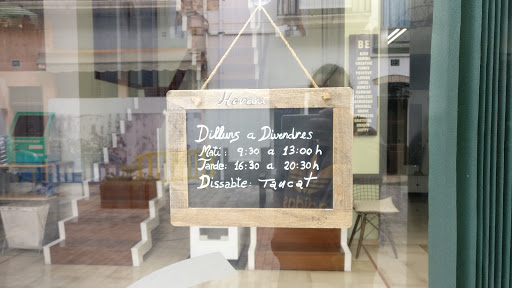 Horari
Dilluns a Divendres
Matí: 9:30 a 13:00 h
Tarde: 16:30 a 20:30 h
Dissabte: Tancat
BE